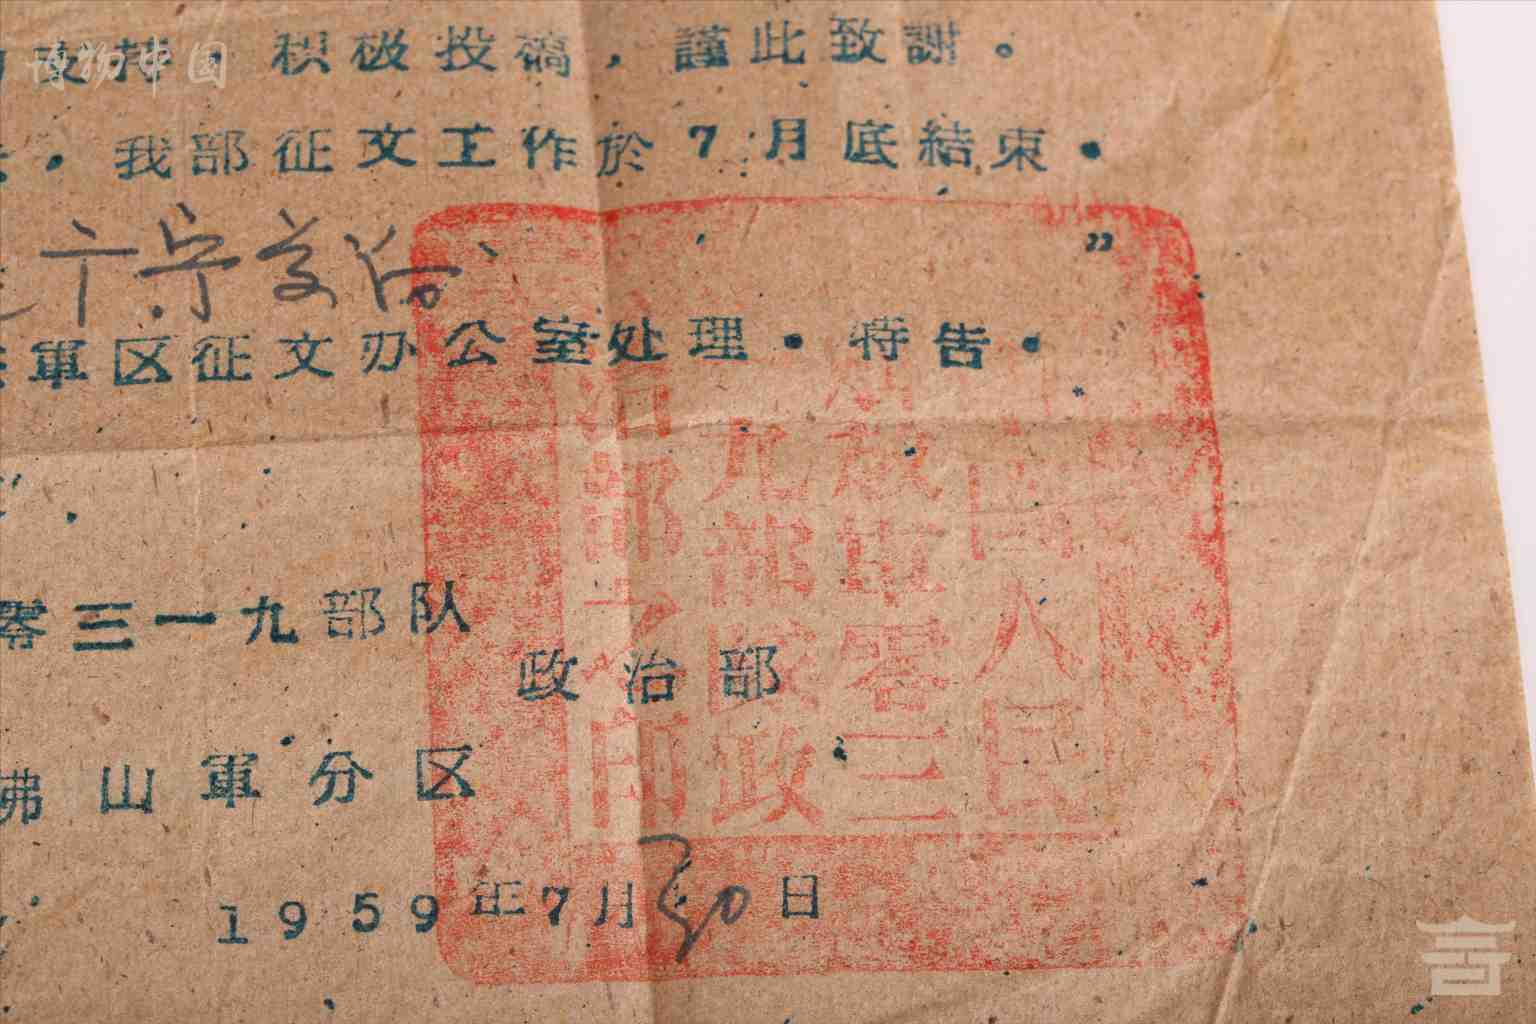 博物中国
支持 积极投稿，謹此致謝。
我部征文工作於7月底結束.
”
軍区征文办公室处理.特告.
零三一九部队
政治部
佛山軍分区
1959年7月30日
国人民
放軍零三
九部政
部之印